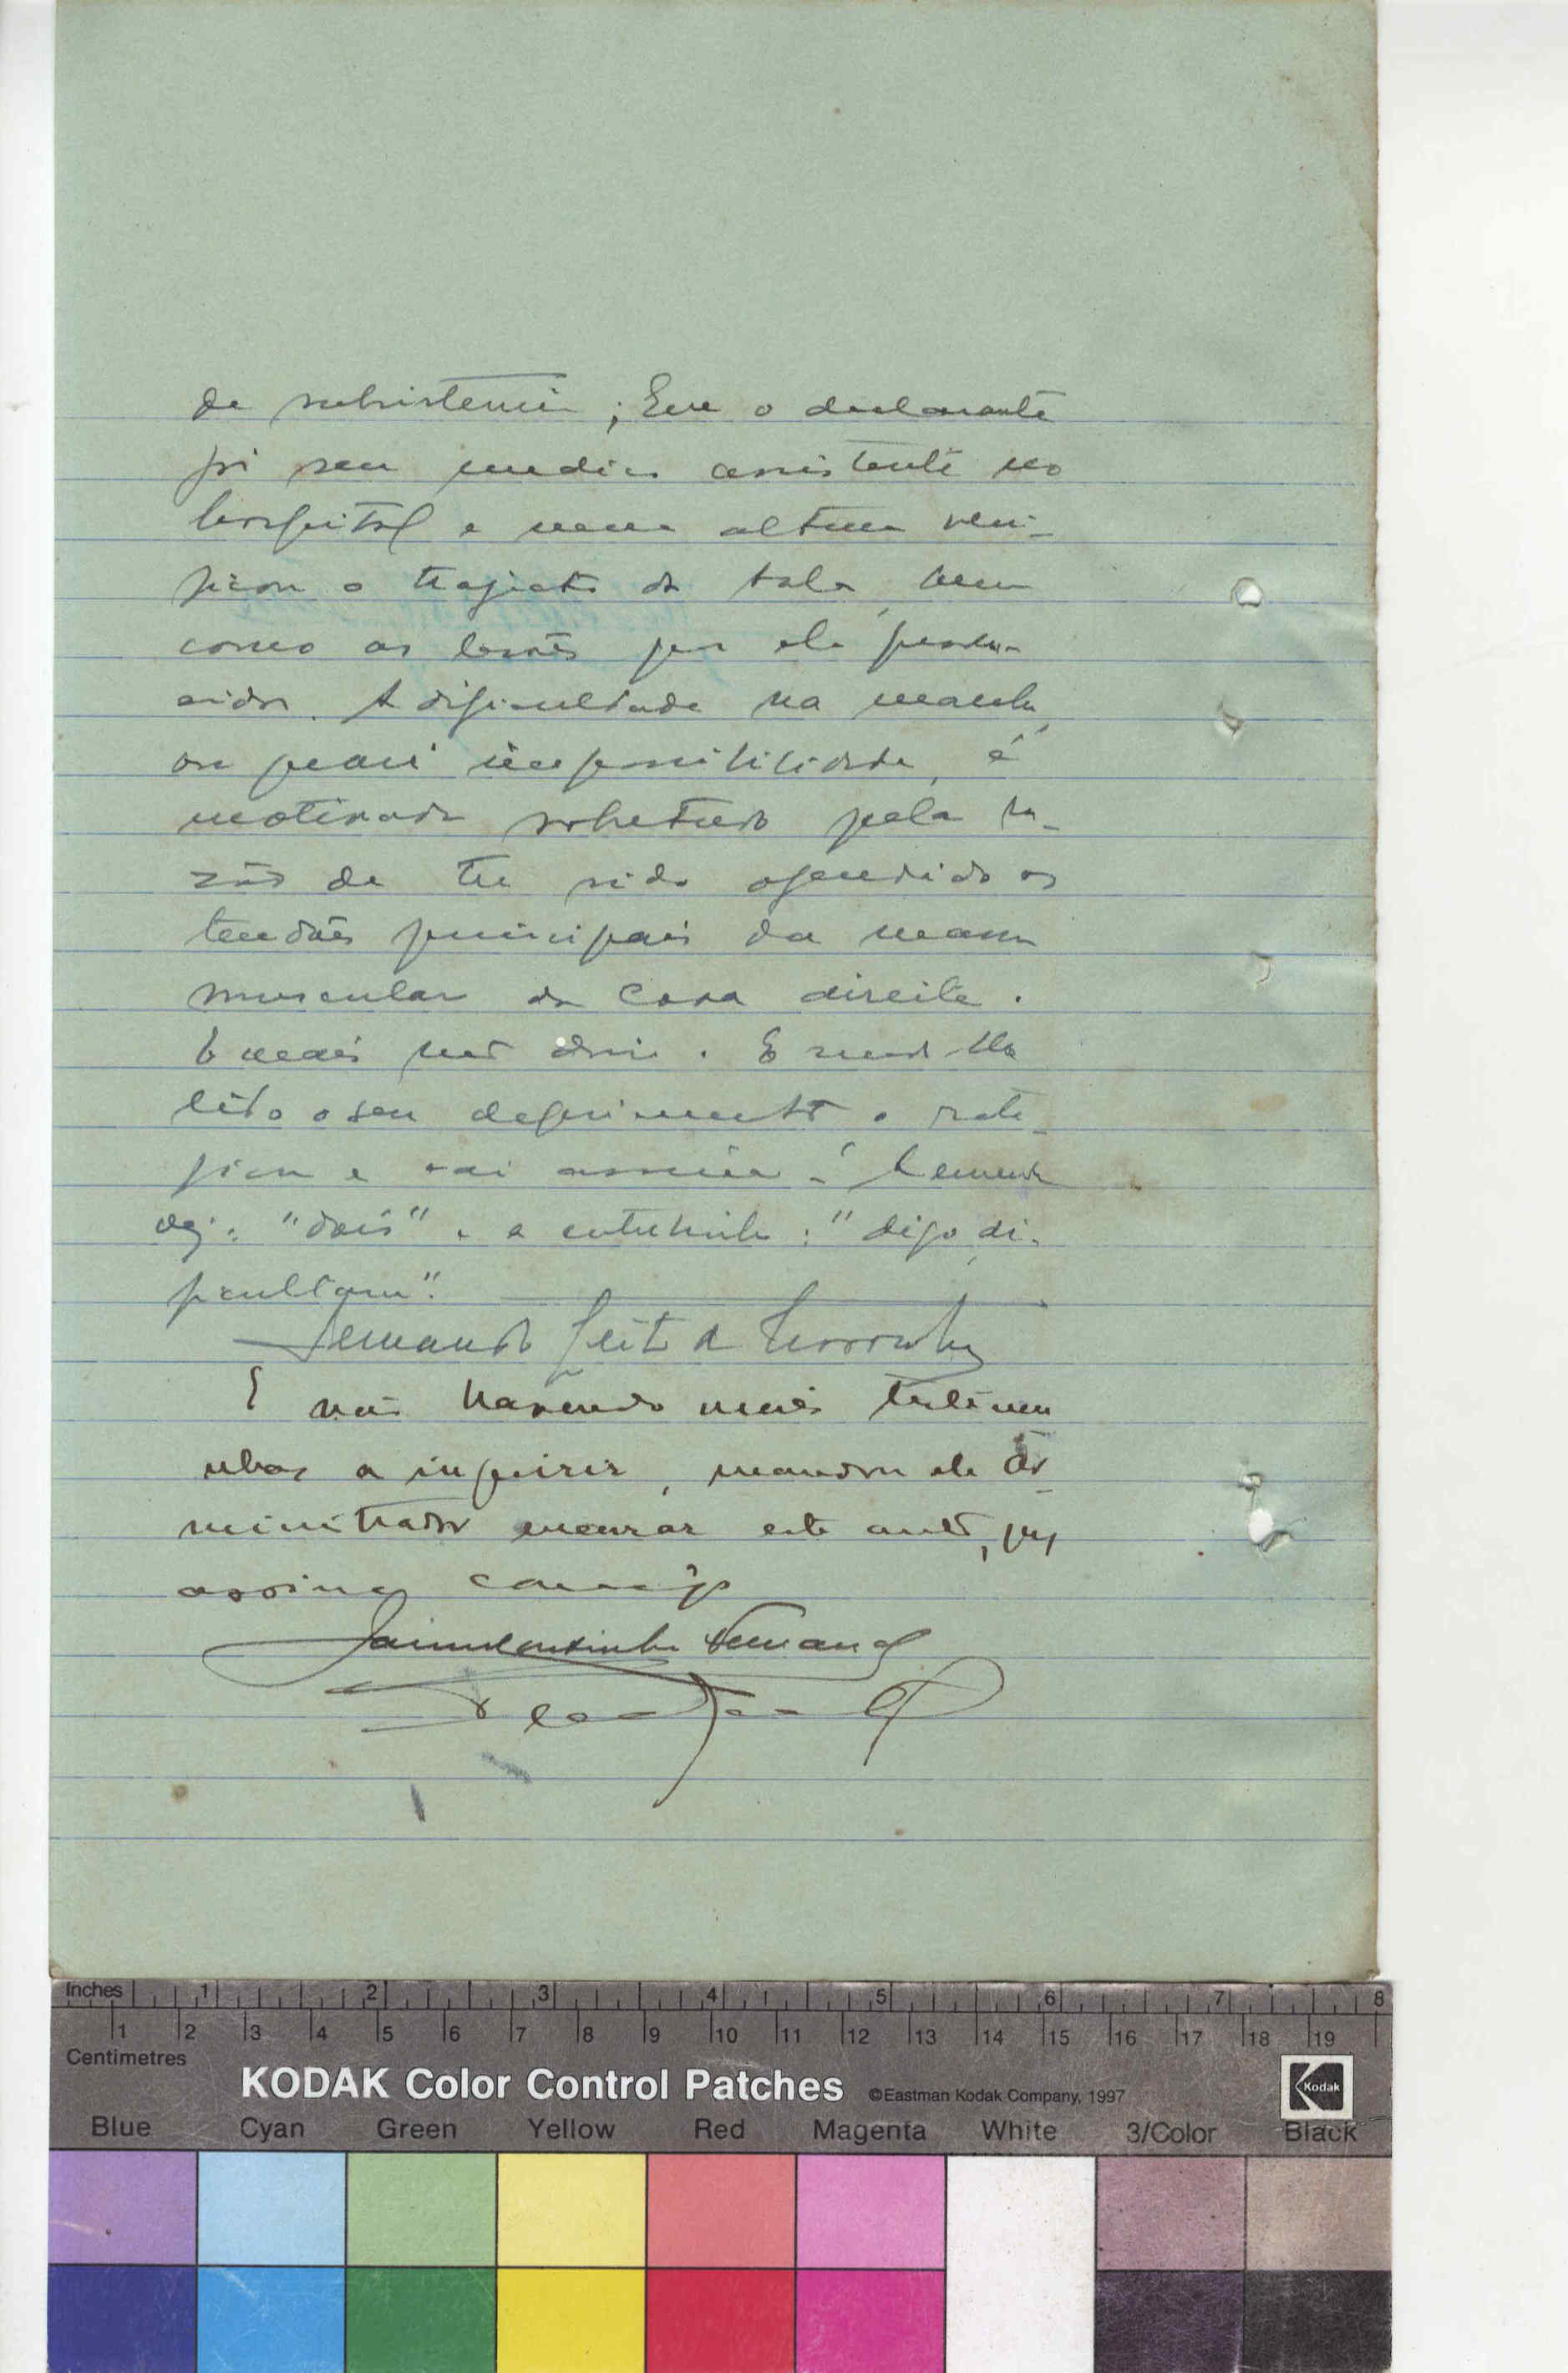 de subsistencia; Que o declarante
foi seu medico assistente no
hospital e nessa altura veri-
ficou o trajecto da bala, bem
como as lesões por ela produ-
zidas. A dificuldade na marcha,
ou quasi impossibilidade, é
motivada sobretudo pela ra-
zão de ter sido ofendido os
tendões principais da massa
muscular da coxa direita.
E mais não disse. E sendo-lhe
lido o seu depoimento o rati-
ficou e vai assinar.
"dois" e a entrelinha: "digo, di-
ficultam".
Fernando
E não havendo mais testemu
nhas a inquirir, mandou ele Ad-
ministrador encerrar este auto, que
assina comigo
Inches 1 2 3 4 5 6 7 8
1 2 3 4 5 6 7 8 9 10 11 12 13 14 15 16 17 18 19
Centimetres
KODAK Color Control Patches ©Eastman Kodak Company, 1997 Kodak
Blue Cyan Green Yellow Red Magenta White 3/Color Black